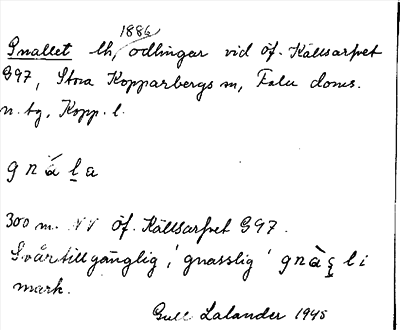 1886
Gnallet lh, odlingar vid öf. Källsarfvet
G97, Stora Kopparbergs sn, Falu doms.
n. tg, Kopp. l.
g n á l a
300 m. NV öf. Källsarfvet G97.
Svårtillgänglig, 'gnasslig' g n à s l i
mark.
Gull Lalander 1945